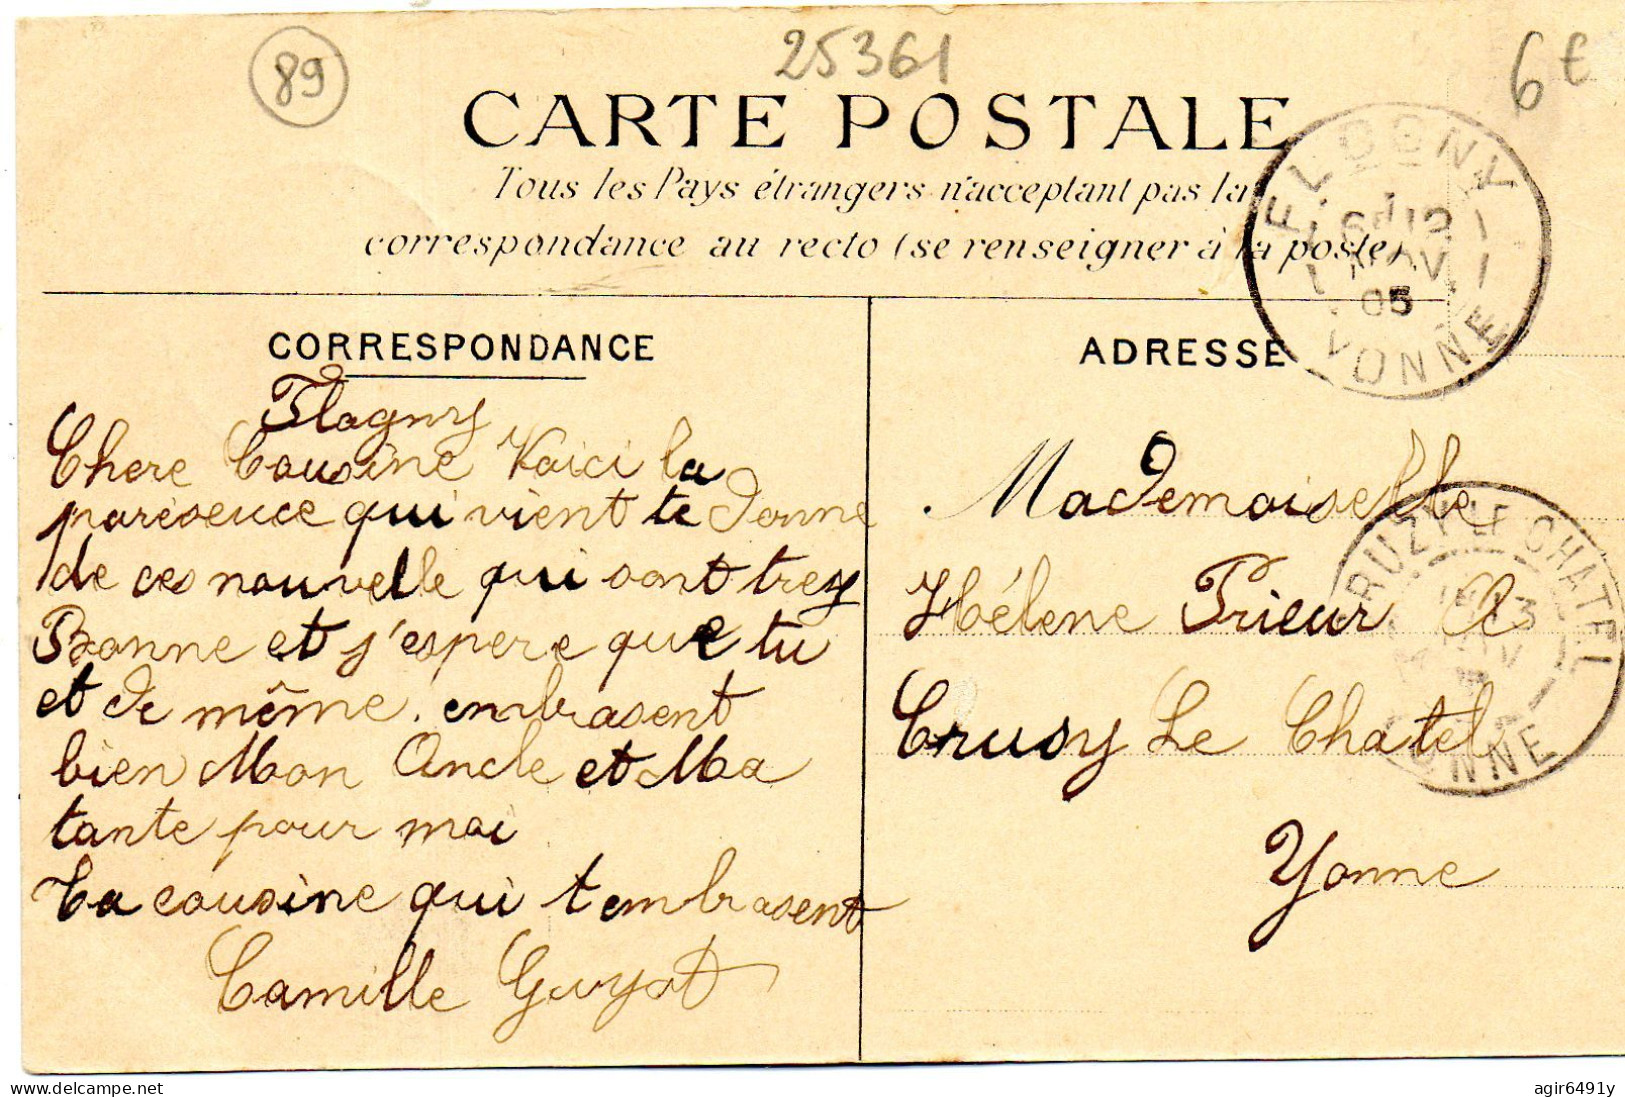 89
25361
6€
CARTE POSTALE
Tous les Pays étrangers n'acceptant pas la
correspondance au recto (se renseigner à la poste)
FLOGNY
12
05
YONNE
CORRESPONDANCE
Flogny
Chere Cousine Voici la
qui vient te donne
de ces nouvelle qui sont tres
Bonne et j'espere que tu
et de même. embrasent
bien Mon Oncle et Ma
tante pour moi
Ta cousine qui t embrasent
Camille Guyot
ADRESSE
Mademoiselle
Hélène Prieur A
Crusy Le Chatel
Yonne
CRUZY LE CHATEL
YONNE
delcampe.net
agir6491y